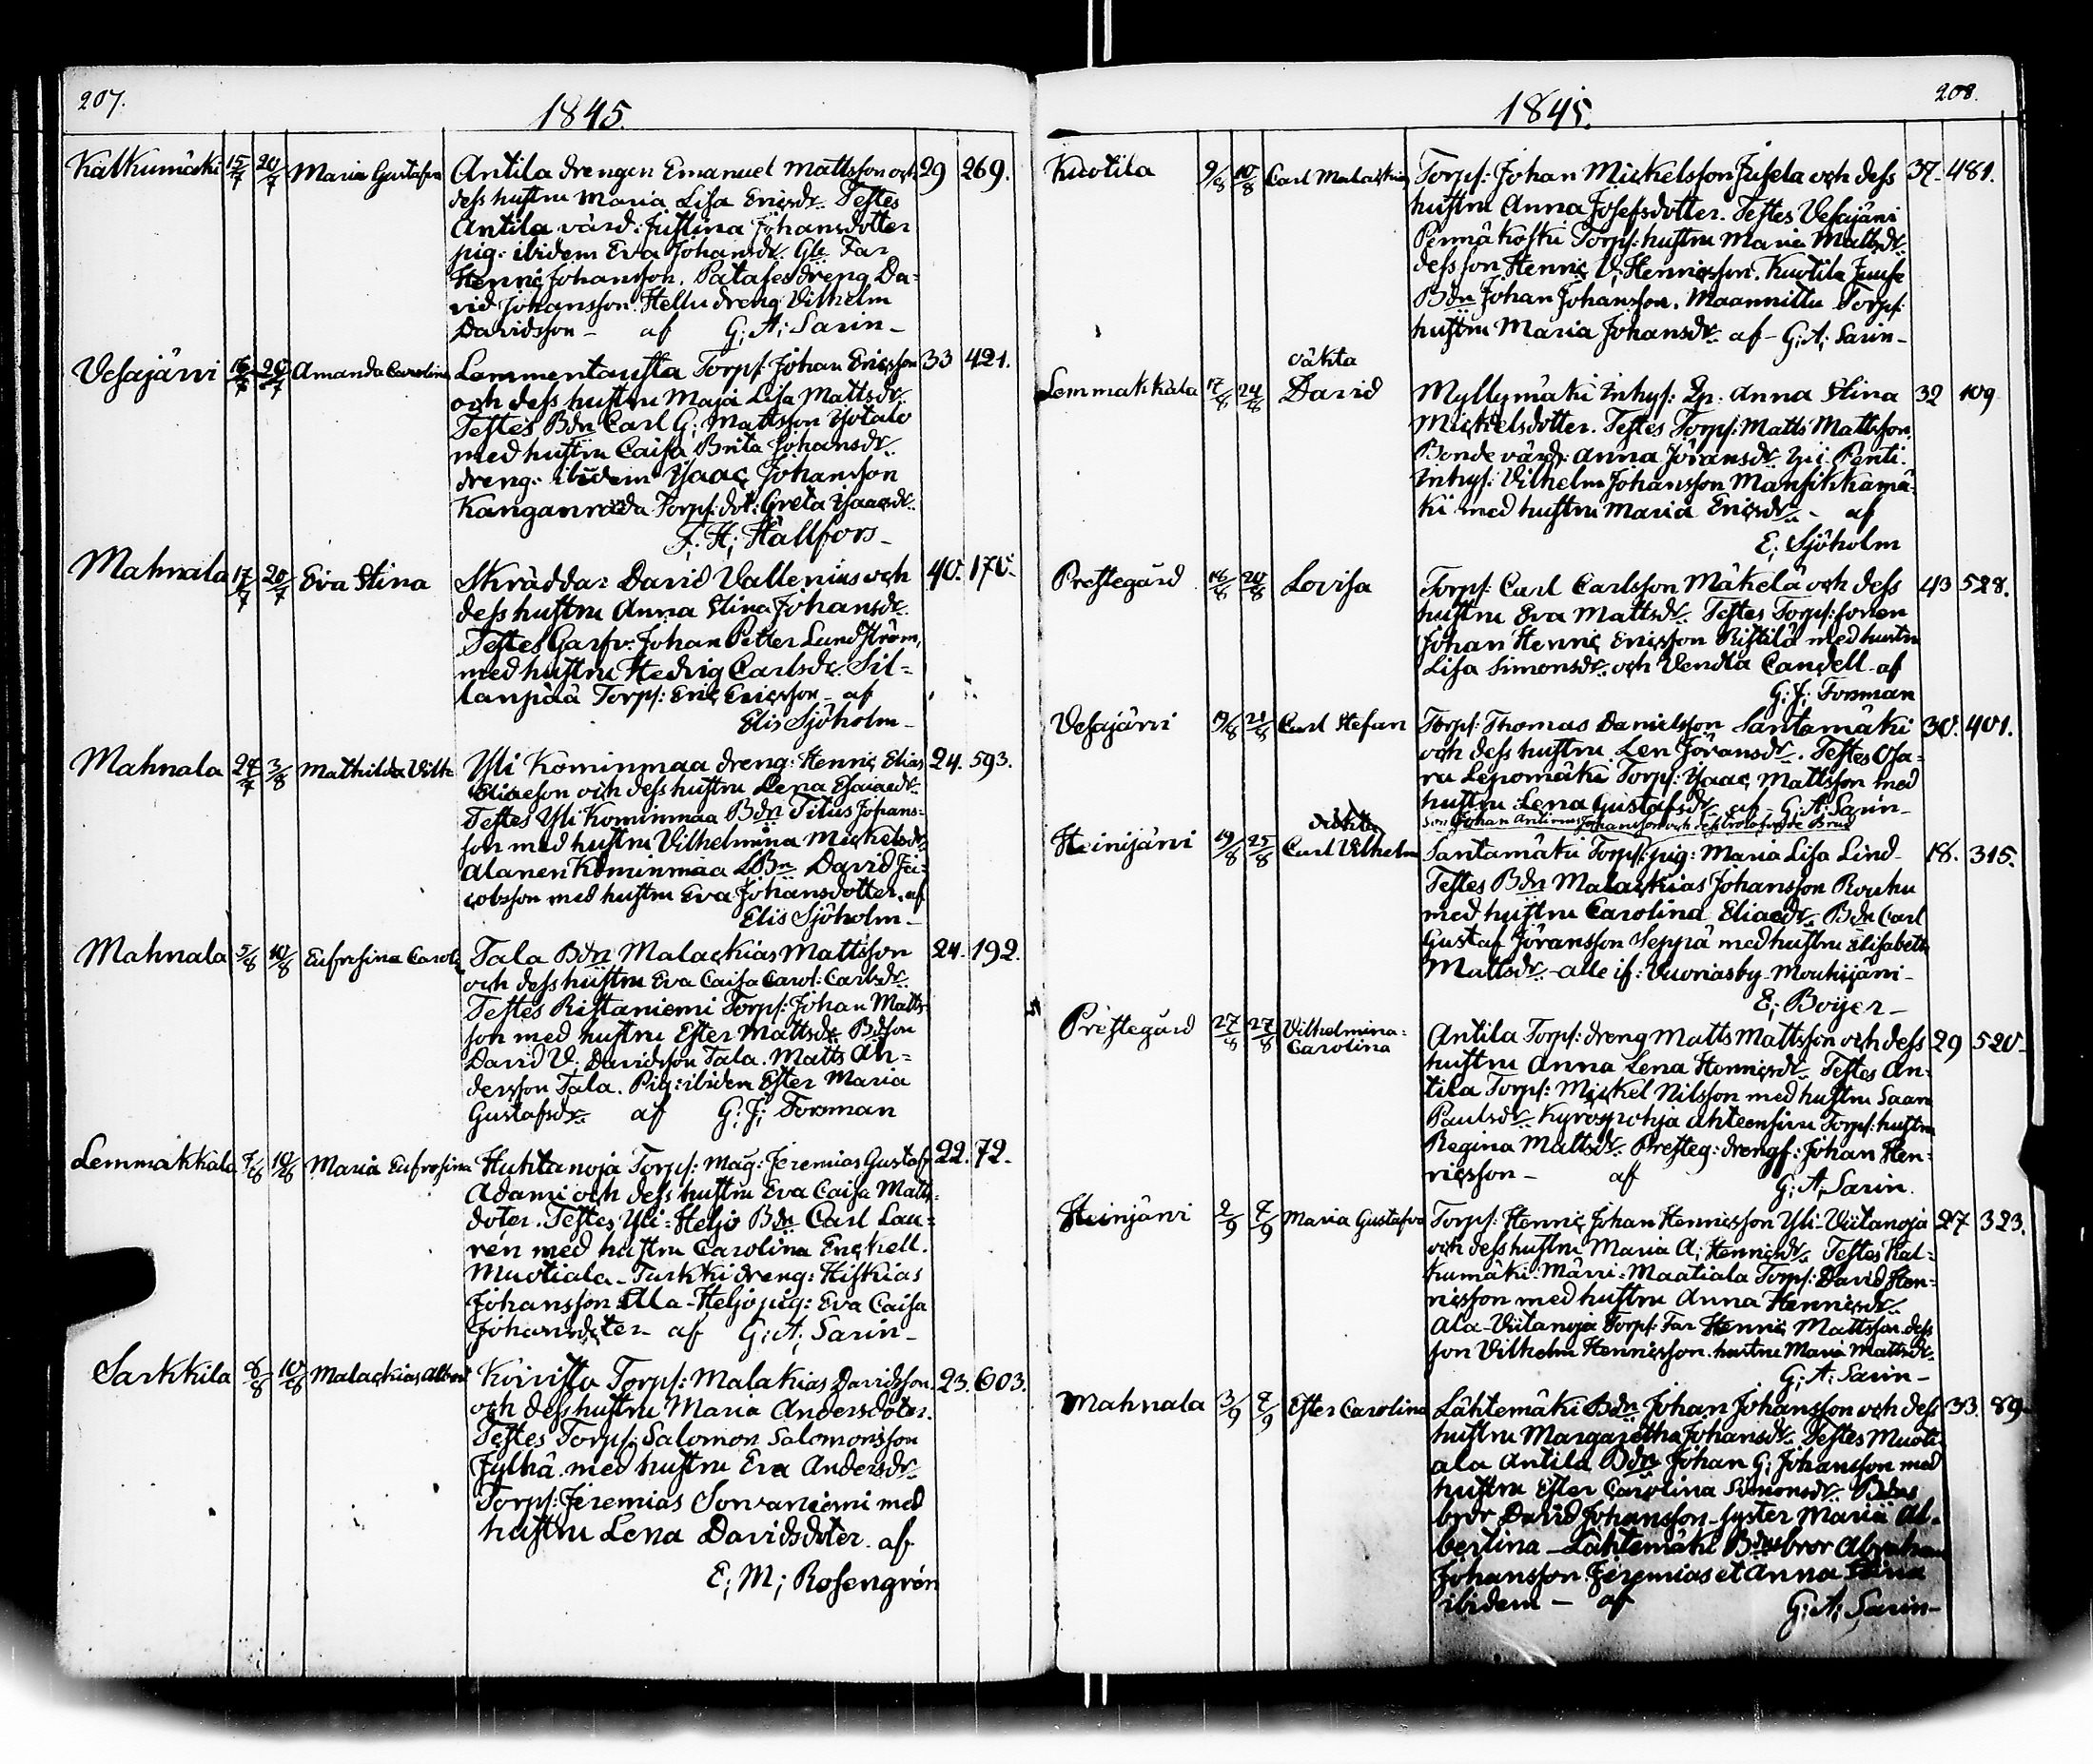 207.
1845.
Kalkumäki 15/7 20/7 Maria Gustafva Antila drengen Emanuel Mattsson och 29 269.
dess hustru Maria Lisa Ericsdr. Testes
Antila värd: Justina Johansdotter
pig: ibidem Eva Johansdr. Gle Far
Henric Johansson. Patala dreng Da-
vid Johansson. Hellu dreng Vilhelm
Davidsson – af G: A: Sarin –
Vesajärvi 16/7 20/7 Amanda Carolina Lammentausta Torp: Johan Ericsson 33 421.
och dess hustru Maja Lisa Mattsdr.
Testes Bdn Carl G: Mattsson Ysotalo
med hustru Caisa Brita Johansdr.
dreng: ibidem Ysaac Johansson
Torp: dot: Greta Ysaacsdr.
F: H: Hällfors –
Mahnala 17/7 20/7 Eva Stina Skräddar David Vallenius och 40. 170.
dess hustru Anna Stina Johansdr.
Testes Garfv: Johan Petter Lundström,
med hustru Hedvig Carlsdr. Sil-
lanpää Torp: Eric Ericsson – af
Elis Sjöholm –
Mahnala 27/7 3/8 Mathilda Vilh Yli Kominmaa dreng: Henric Elias 24. 593.
Eliaeson och dess hustru Lena Esaiaedr.
Testes Yli Kominmaa Bdn Titus Johans-
son med hustru Vilhelmina Mickelsdr
Alanen Kominmaa Bdn David Ja-
cobsson med hustru Eva Johansdotter. af
Elis Sjöholm –
Mahnala 5/8 10/8 Eufrosina Carol: Tala Bdn Malackias Mattsson 24. 192.
och dess hustru Eva Caisa Carol: Carlsdr.
Testes Ristaniemi Torp: Johan Matts-
son med hustru Ester Mattsdr. Bdson
David V: Davidsson Tala. Matts An-
dersson Tala. Pig: ibidem Ester Maria
Gustafsdr. af G: J: Forsman
Lemmakkala 7/8 10/8 Maria Eufrosina Huhtanoja Torp: Mag: Jeremias Gustafs 22. 72.
Adami och dess hustru Eva Caisa Matts-
doter. Testes Yli-Heljo Bdn Carl Lau-
rén med hustru Carolina Enckell.
Muotiala-Turkki dreng: Hiskias
Johansson Ala-Heljo pig: Eva Caisa
Johansdoter – af G: A: Sarin –
Sarkkila 8/8 10/8 Malackias Albert Koivisto Torp: Malakias Davidsson 23. 603.
och dess hustru Maria Andersdoter.
Testes Torp: Salomon Salomonsson
Jylhä med hustru Eva Andersdr.
Torp: Jeremias Sorvaniemi med
hustru Lena Davidsdoter. af
E: M: Rosengrén
208.
1845.
Kuotila 9/8 10/8 Carl Malackias Torp: Johan Mickelsson Jusela och dess 37. 481.
hustru Anna Josefsdotter. Testes Vesajärvi
Permäkoski Torp: hustru Maria Mattsdr.
dess son Henric V: Henricsson. Kuotila Juuse
Bdn Johan Johansson. Maannittu Torp:
hustru Maria Johansdr. af – G: A: Sarin –
oäkta
Lemmakkala 17/8 24/8 David Myllymäki Inhys: Qp. Anna Stina 32 109
Mickelsdotter. Testes Torp: Matts Mattsson,
Bonde värd: Anna Jöransdr. Yli Penti.
Inhys: Vilhelm Johansson Mansikkamä-
ki med hustru Maria Ericsdr. – af
E: Sjöholm
Prestegård 16/8 20/8 Lovisa Torp: Carl Carlsson Mäkelä och dess 43 528.
hustru Eva Mattsdr. Testes Torp: sonen
Johan Henric Ericsson Ristilä med hustru
Lisa Simonsdr. och Vendla Candell – af
G: J: Forsman
Vesajärvi 19/8 21/8 Carl Stefan Torp: Thomas Danielsson Santamäki 30. 401.
och dess hustru Len Jöransdr. Testes Osa-
ra Lepomäki Torp: Ysaac Mattsson med
hustru Lena Gustafsdr. af – G: A: Sarin –
oäkta
son Johan Johansson och dess trolofvade Brud
Heinijärvi 19/8 25/8 Carl Vilhelm Santamäki Torp: pig: Maria Lisa Lind. 18. 315.
Testes Bdn Malackias Johansson Rouhu
med hustru Carolina Eliaedr. Bdn Carl
Gustaf Jöransson Seppä med hustru Elisabeth
Mattsdr. – alle if: Vuoriasby – Mouhijärvi –
E: Boijer –
Prestegård 27/8 27/8 Vilhelmina-
Carolina
Antila Torp: dreng Matts Mattsson och dess 29 520
hustru Anna Lena Henricsdr. Testes An-
tila Torp: Mickel Nilsson med hustru Saara
Paulsdr. Kyrospohja Torp: hustru
Regina Mattsdr. Presteg: drengf: Johan Hen-
ricsson – af G: A: Sarin.
Heinijärvi 2/9 7/9 Maria Gustafva Torp: Henric Johan Henricsson Yli-Viitanoja 27 323.
och dess hustru Maria A: Henricsdr. Testes Kal-
kumäki-Märri-Maatiala Torp: David Hen-
ricsson med hustru Anna Henricsdr.
Ala-Viitanoja Torp: Far Henric Mattsson dess
son Vilhelm Henricsson. hustru Maria Mattsdr.
G: A: Sarin –
Mahnala 3/9 7/9 Ester Carolina Lähtemäki Bdn Johan Johansson och dess 33. 89.
hustru Margaretha Johansdr. Testes Muoti-
ala Antila Bdn Johan G: Johansson med
hustru Ester Carolina Simonsdr. Bdns
bror David Johansson – syster Maria Al-
bertina – Lähtemäki Bdns bror Abraham
Johansson Jeremias et Anna Stina
ibidem – af G: A: Sarin –